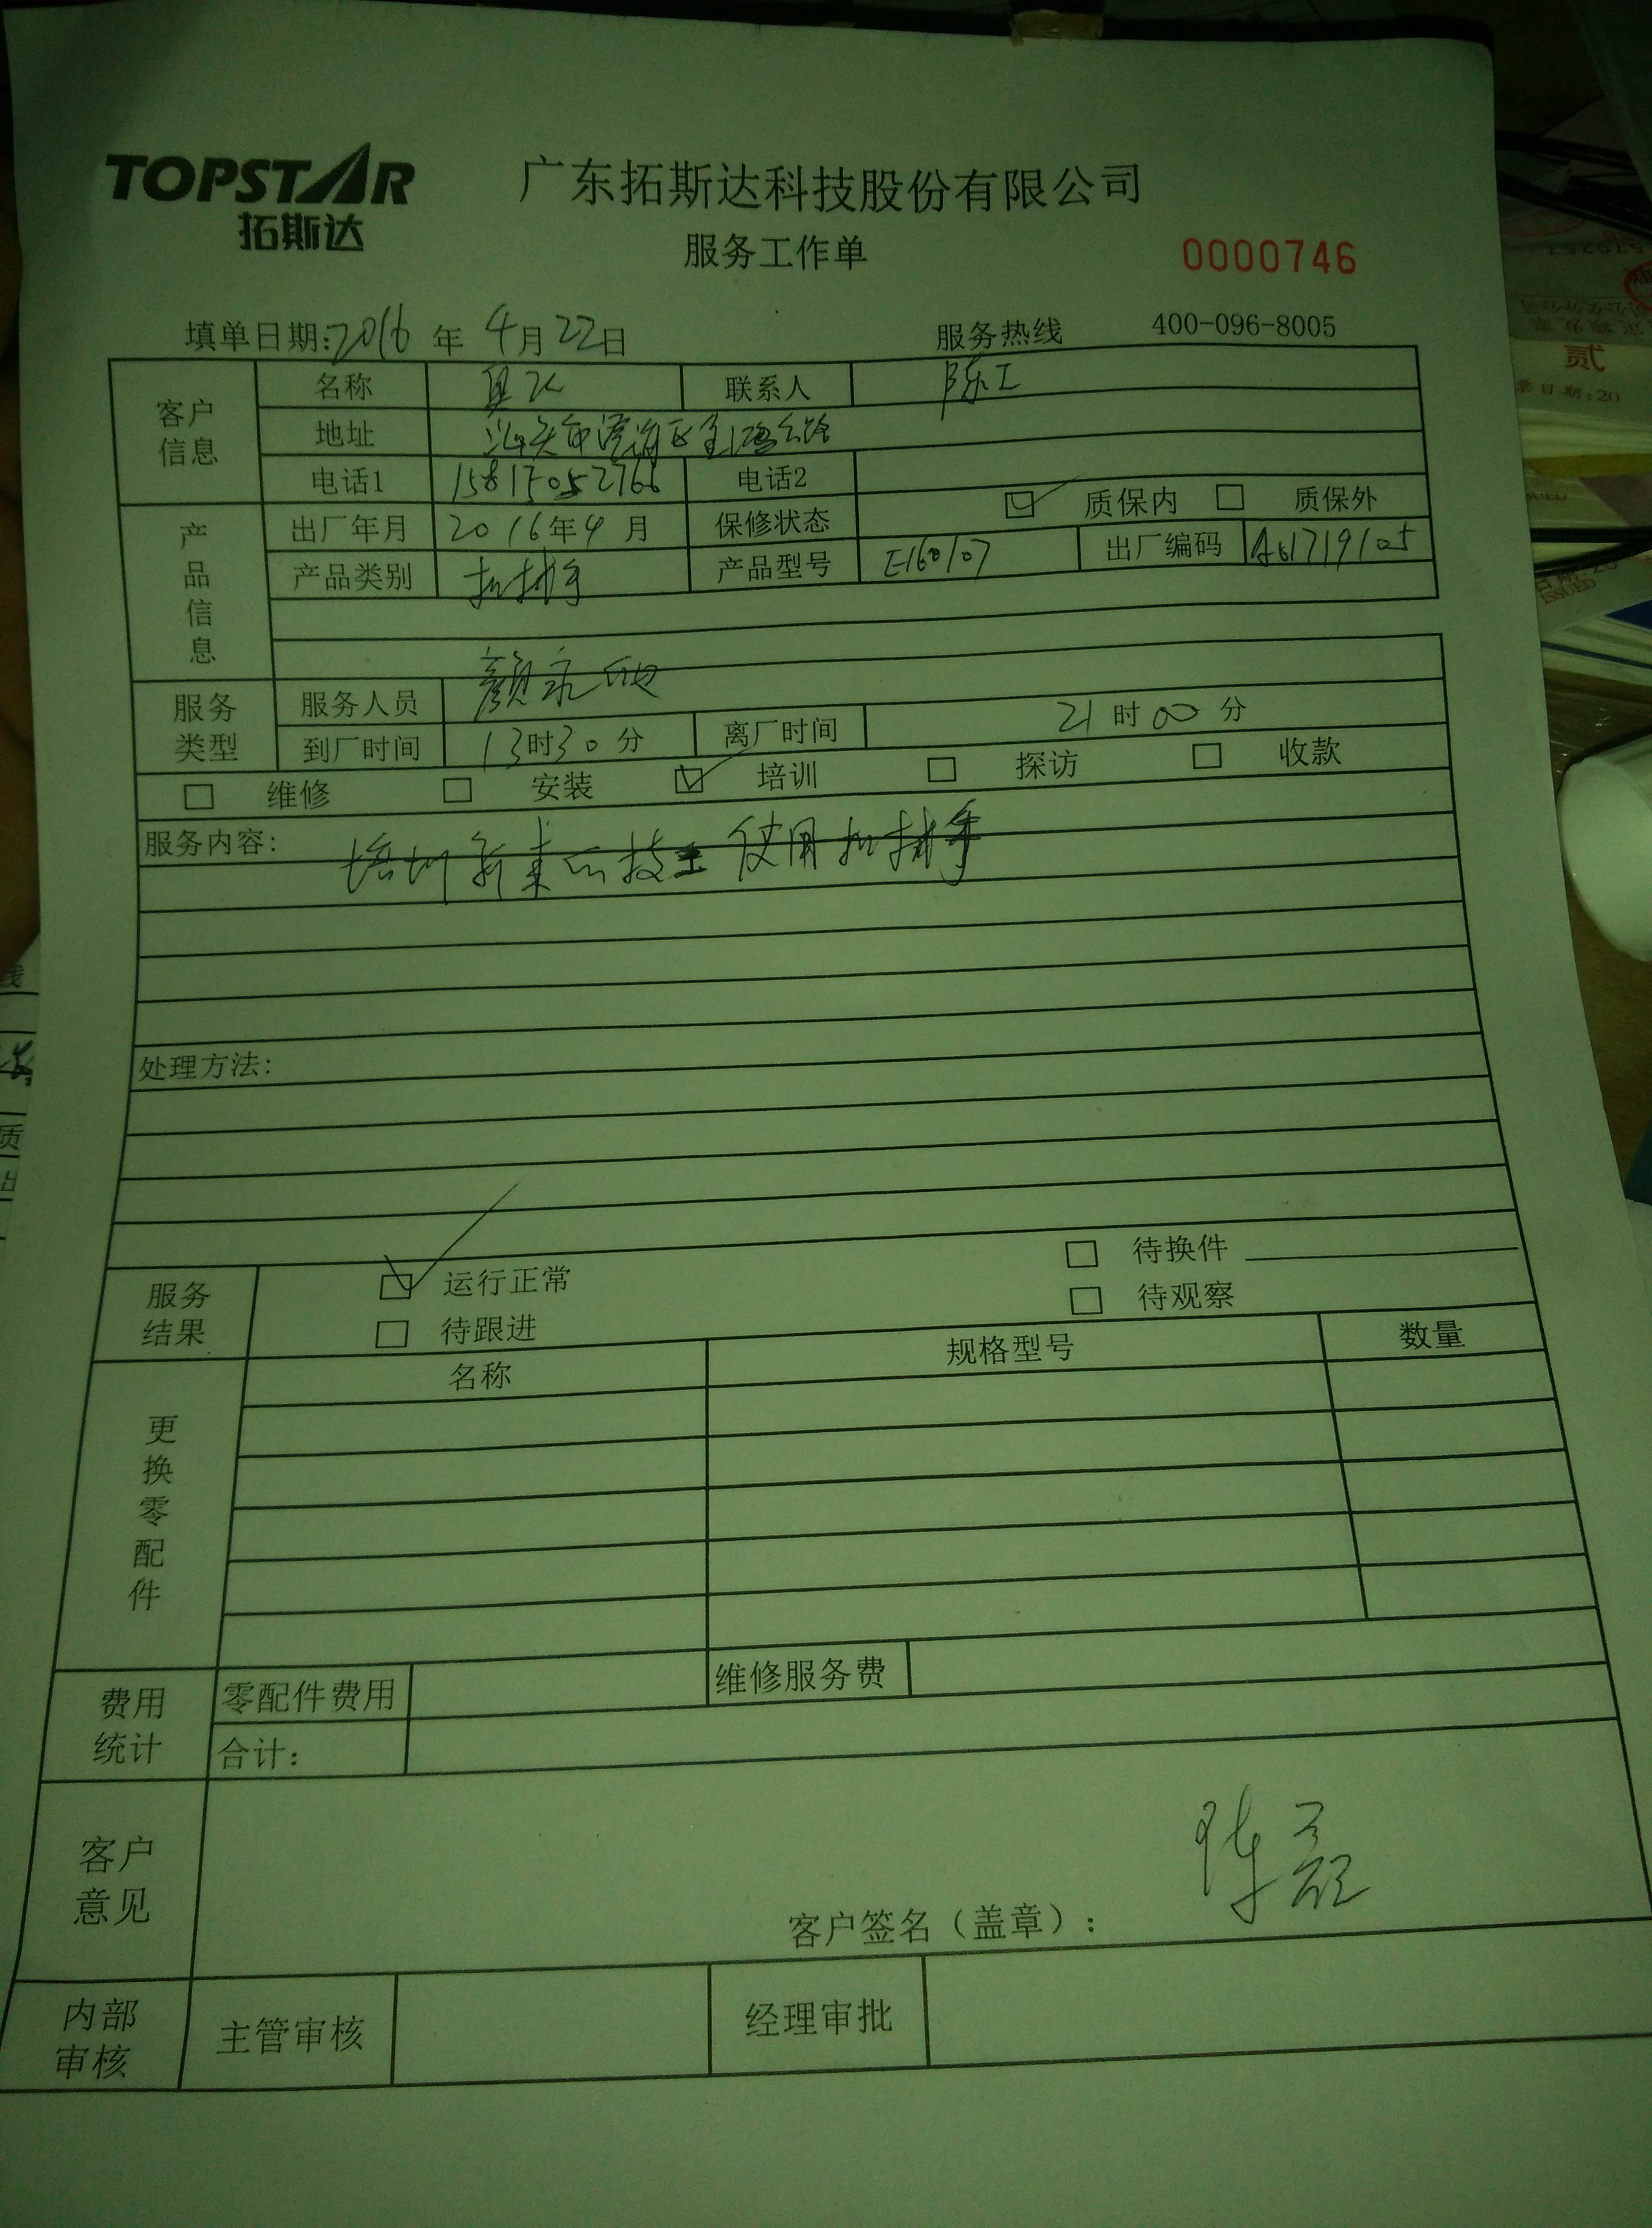 TOPSTAR
拓斯达
广东拓斯达科技股份有限公司
服务工作单
0000746
填单日期:2016年4月22日 服务热线 400-096-8005
客户信息 名称 联系人 陈工
地址 汕头市澄海区
电话1 15817052766 电话2
产品信息 出厂年月 2016年4月 保修状态 质保内 质保外
产品类别 机械手 产品型号 E160107 出厂编码 A61719105
服务类型 服务人员 颜
到厂时间 13时30分 离厂时间 21时00分
维修 安装 培训 探访 收款
服务内容: 培训新来的技工使用机械手
处理方法:
服务结果 运行正常 待换件
待跟进 待观察
更换零配件 名称 规格型号 数量
费用统计 零配件费用 维修服务费
合计:
客户意见
客户签名（盖章）: 陈
内部审核 主管审核 经理审批
贰
票日期:20
ISSUED